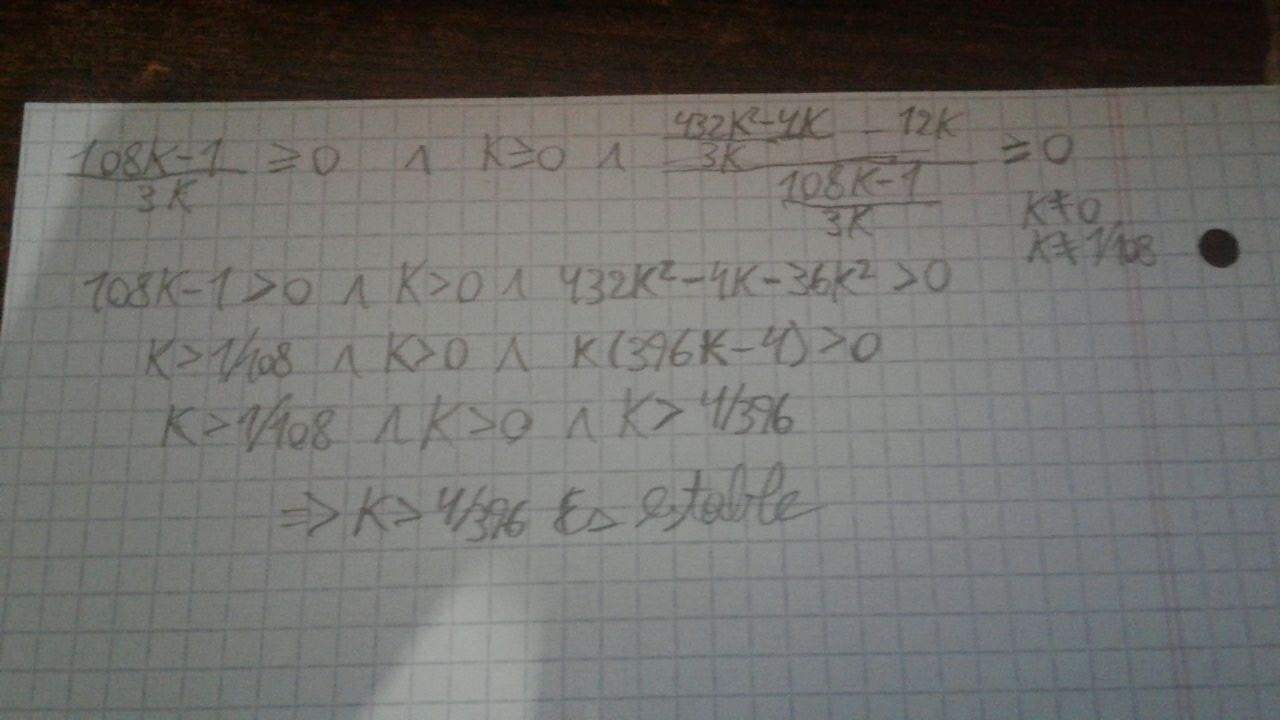 (108K-1)/(3K) ≥ 0 ∧ K ≥ 0 ∧ ((432K²-4K)/(3K) - 12K)/((108K-1)/(3K)) ≥ 0
K≠0
K≠1/108
108K-1>0 ∧ K>0 ∧ 432K²-4K-36K²>0
K>1/108 ∧ K>0 ∧ K(396K-4)>0
K>1/108 ∧ K>0 ∧ K>4/396
⇒ K>4/396 Es estable